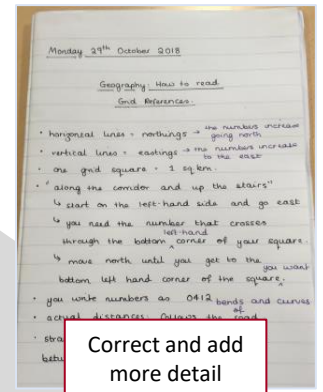 Monday 29th October 2018
Geography: How to read
Grid References.
• horizontal lines = northings → the numbers increase
going north
• vertical lines = eastings → the numbers increase
to the east
• one grid square = 1 sq km.
• "along the corridor and up the stairs"
↳ start on the left-hand side and go east
↳ you need the number that crosses
left-hand
through the bottom ^ corner of your square.
↳ move north until you get to the
you want
bottom left hand corner of the square ^.
• you write numbers as 0412
bends and curves
of
• actual distances: follows the road
stra
betw
Correct and add
more detail